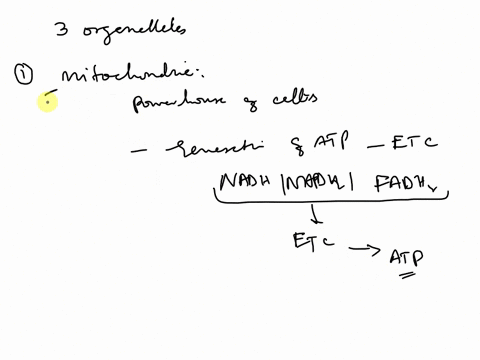 3 orgenelles
① mitochondrie:.
powerhouse of cells
— Generation of ATP — ETC
NADH | NADH₂ | FADH₂
ETC → ATP